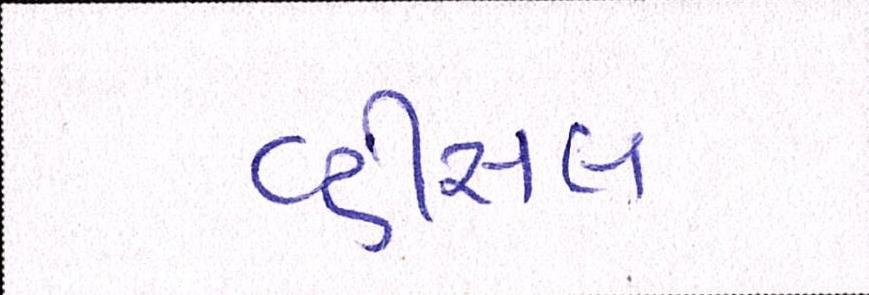 વ્હીસલ